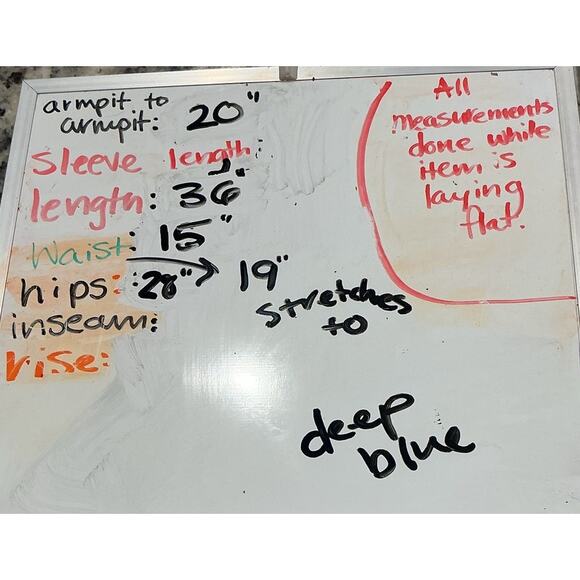 armpit to
armpit: 20"
Sleeve length:
length: 36"
Waist: 15"
hips: 28" → 19"
stretches
to
inseam:
rise:
All
measurements
done while
item is
laying
flat.
deep
blue